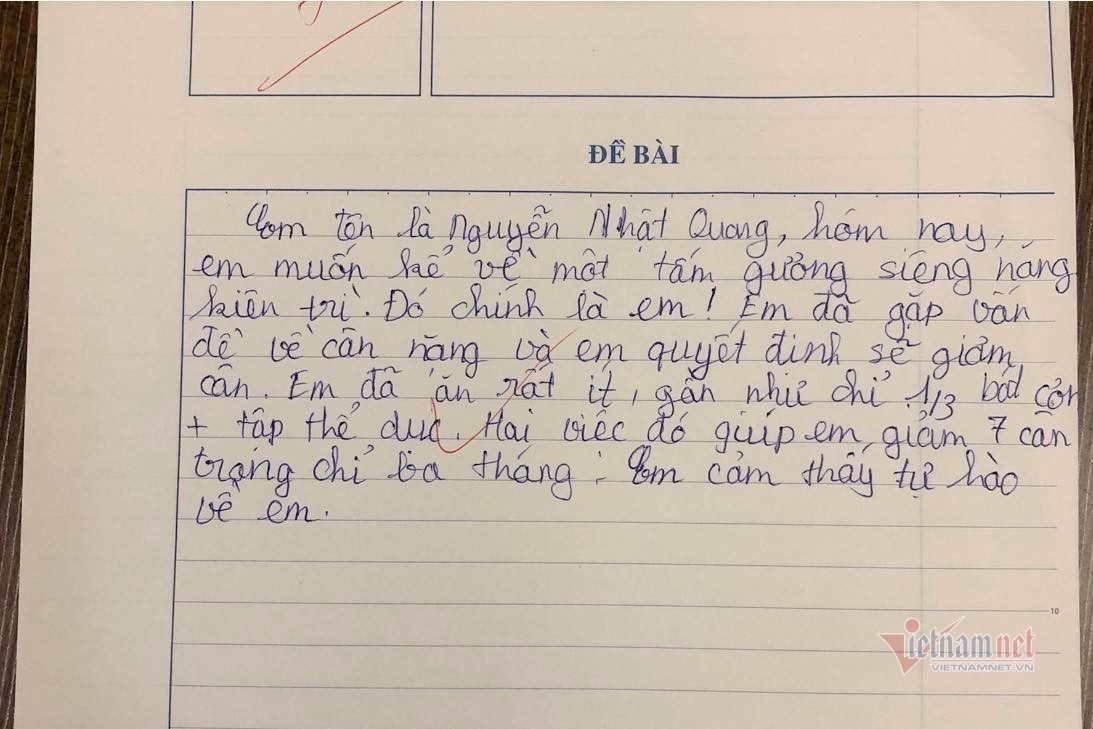 ĐỀ BÀI
Em tên là Nguyễn Nhật Quang, hôm nay,
em muốn kể về một tấm gương siêng năng
kiên trì. Đó chính là em! Em đã gặp vấn
đề về cân nặng và em quyết định sẽ giảm
cân. Em đã ăn rất ít, gần như chỉ 1/3 bát cơm
+ tập thể dục. Hai việc đó giúp em giảm 7 cân
trọng chỉ ba tháng. Em cảm thấy tự hào
về em.
10
Vietnamnet
VIETNAMNET.VN